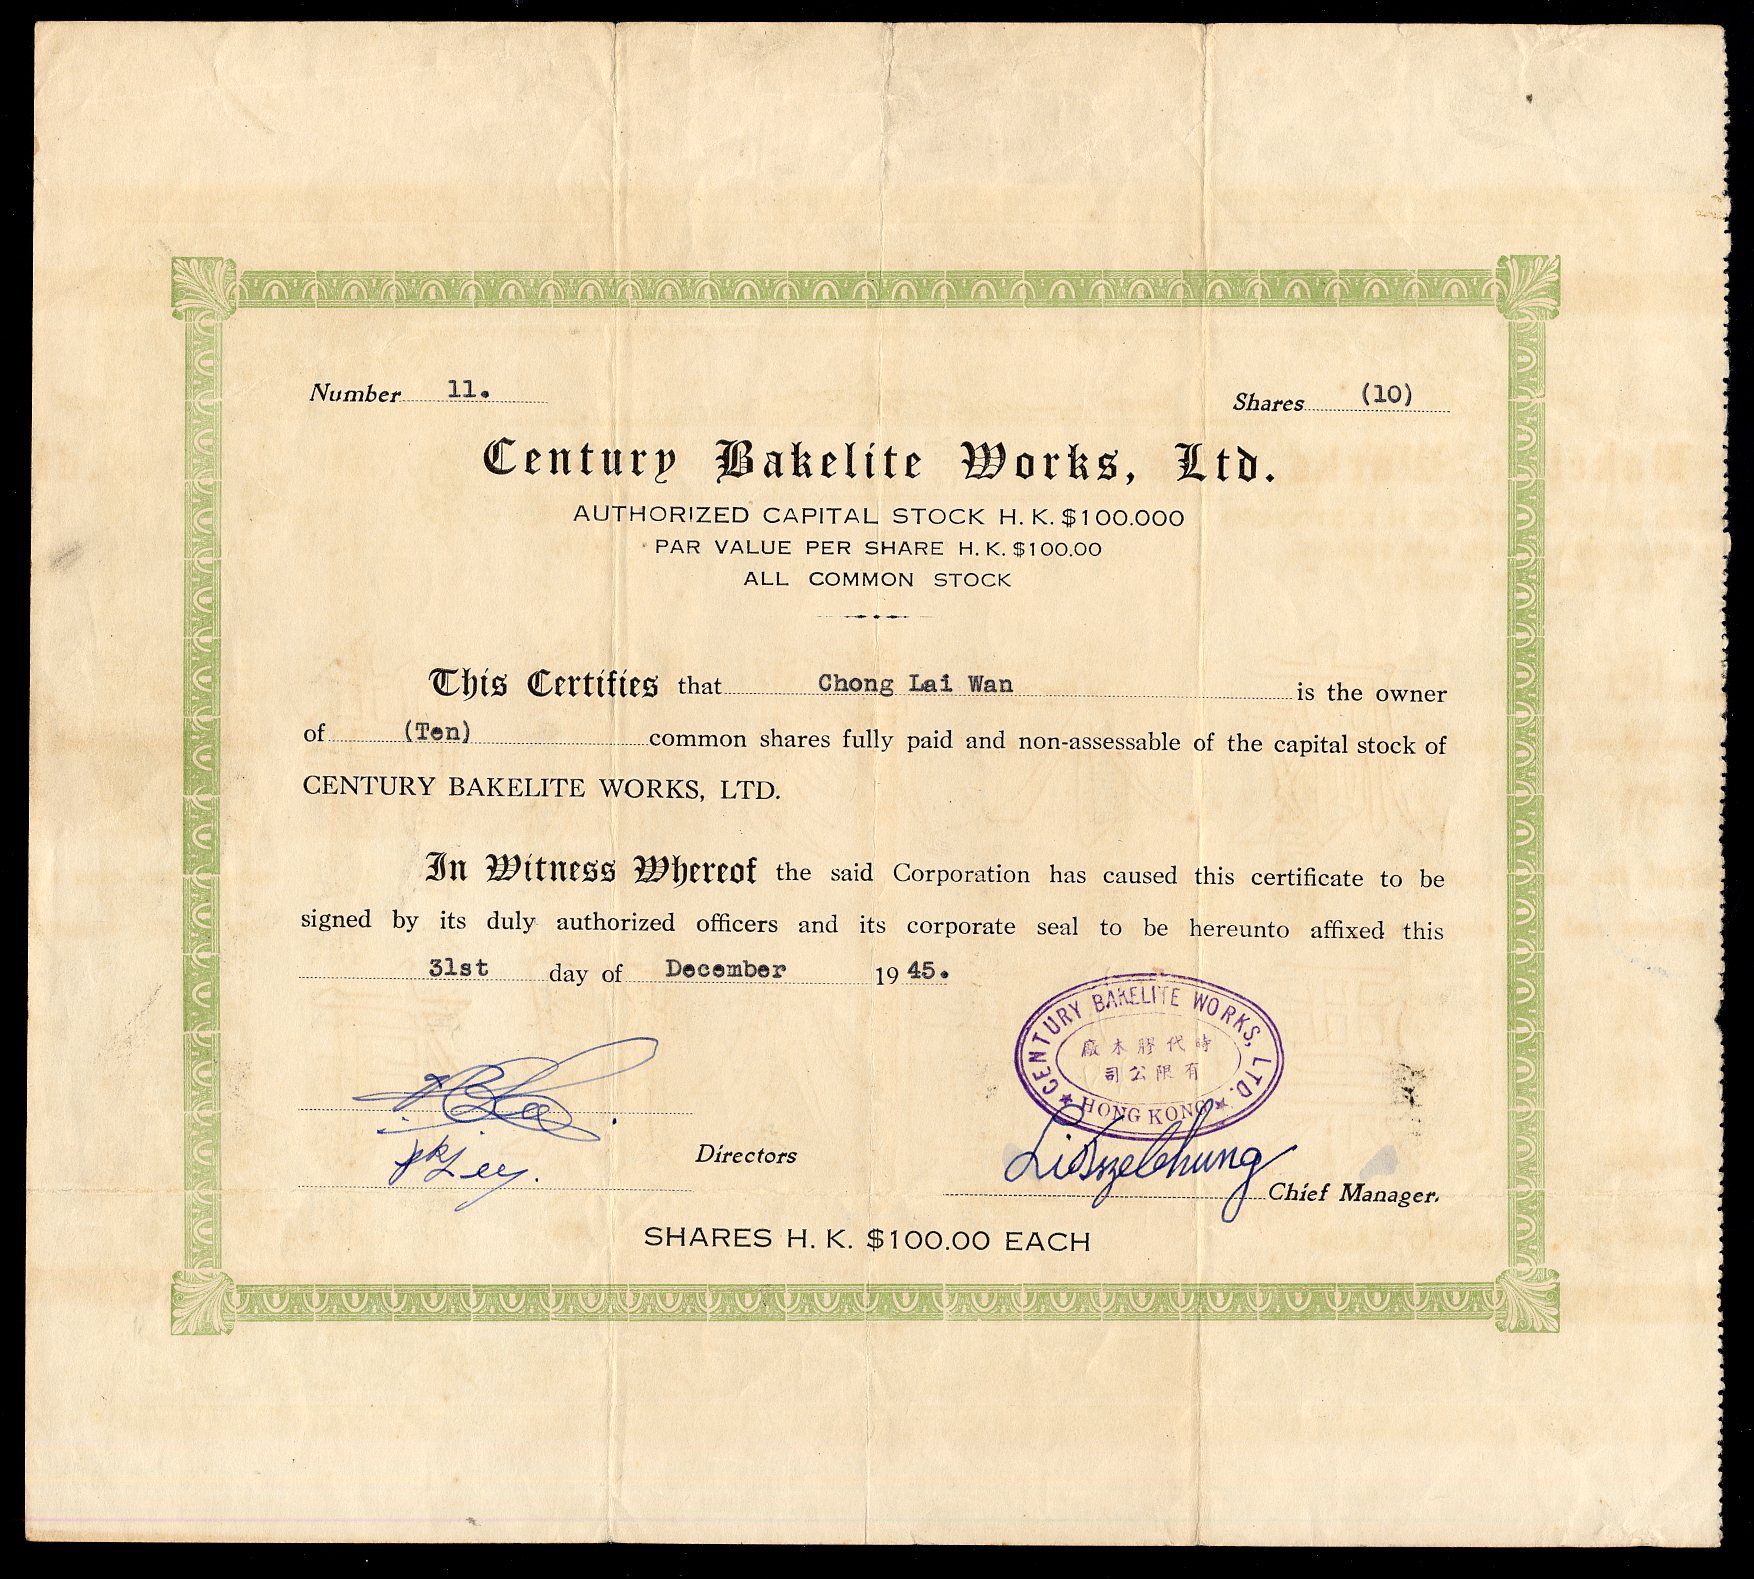 Number 11.
Shares (10)
Century Bakelite Works, Ltd.
AUTHORIZED CAPITAL STOCK H. K. $100.000
PAR VALUE PER SHARE H. K. $100.00
ALL COMMON STOCK
This Certifies that Chong Lai Wan is the owner
of (Ten) common shares fully paid and non-assessable of the capital stock of
CENTURY BAKELITE WORKS, LTD.
In Witness Whereof the said Corporation has caused this certificate to be
signed by its duly authorized officers and its corporate seal to be hereunto affixed this
31st day of December 1945.
CENTURY BAKELITE WORKS, LTD.
廠木膠代時
司公限有
HONG KONG
Directors
Chief Manager.
SHARES H. K. $100.00 EACH